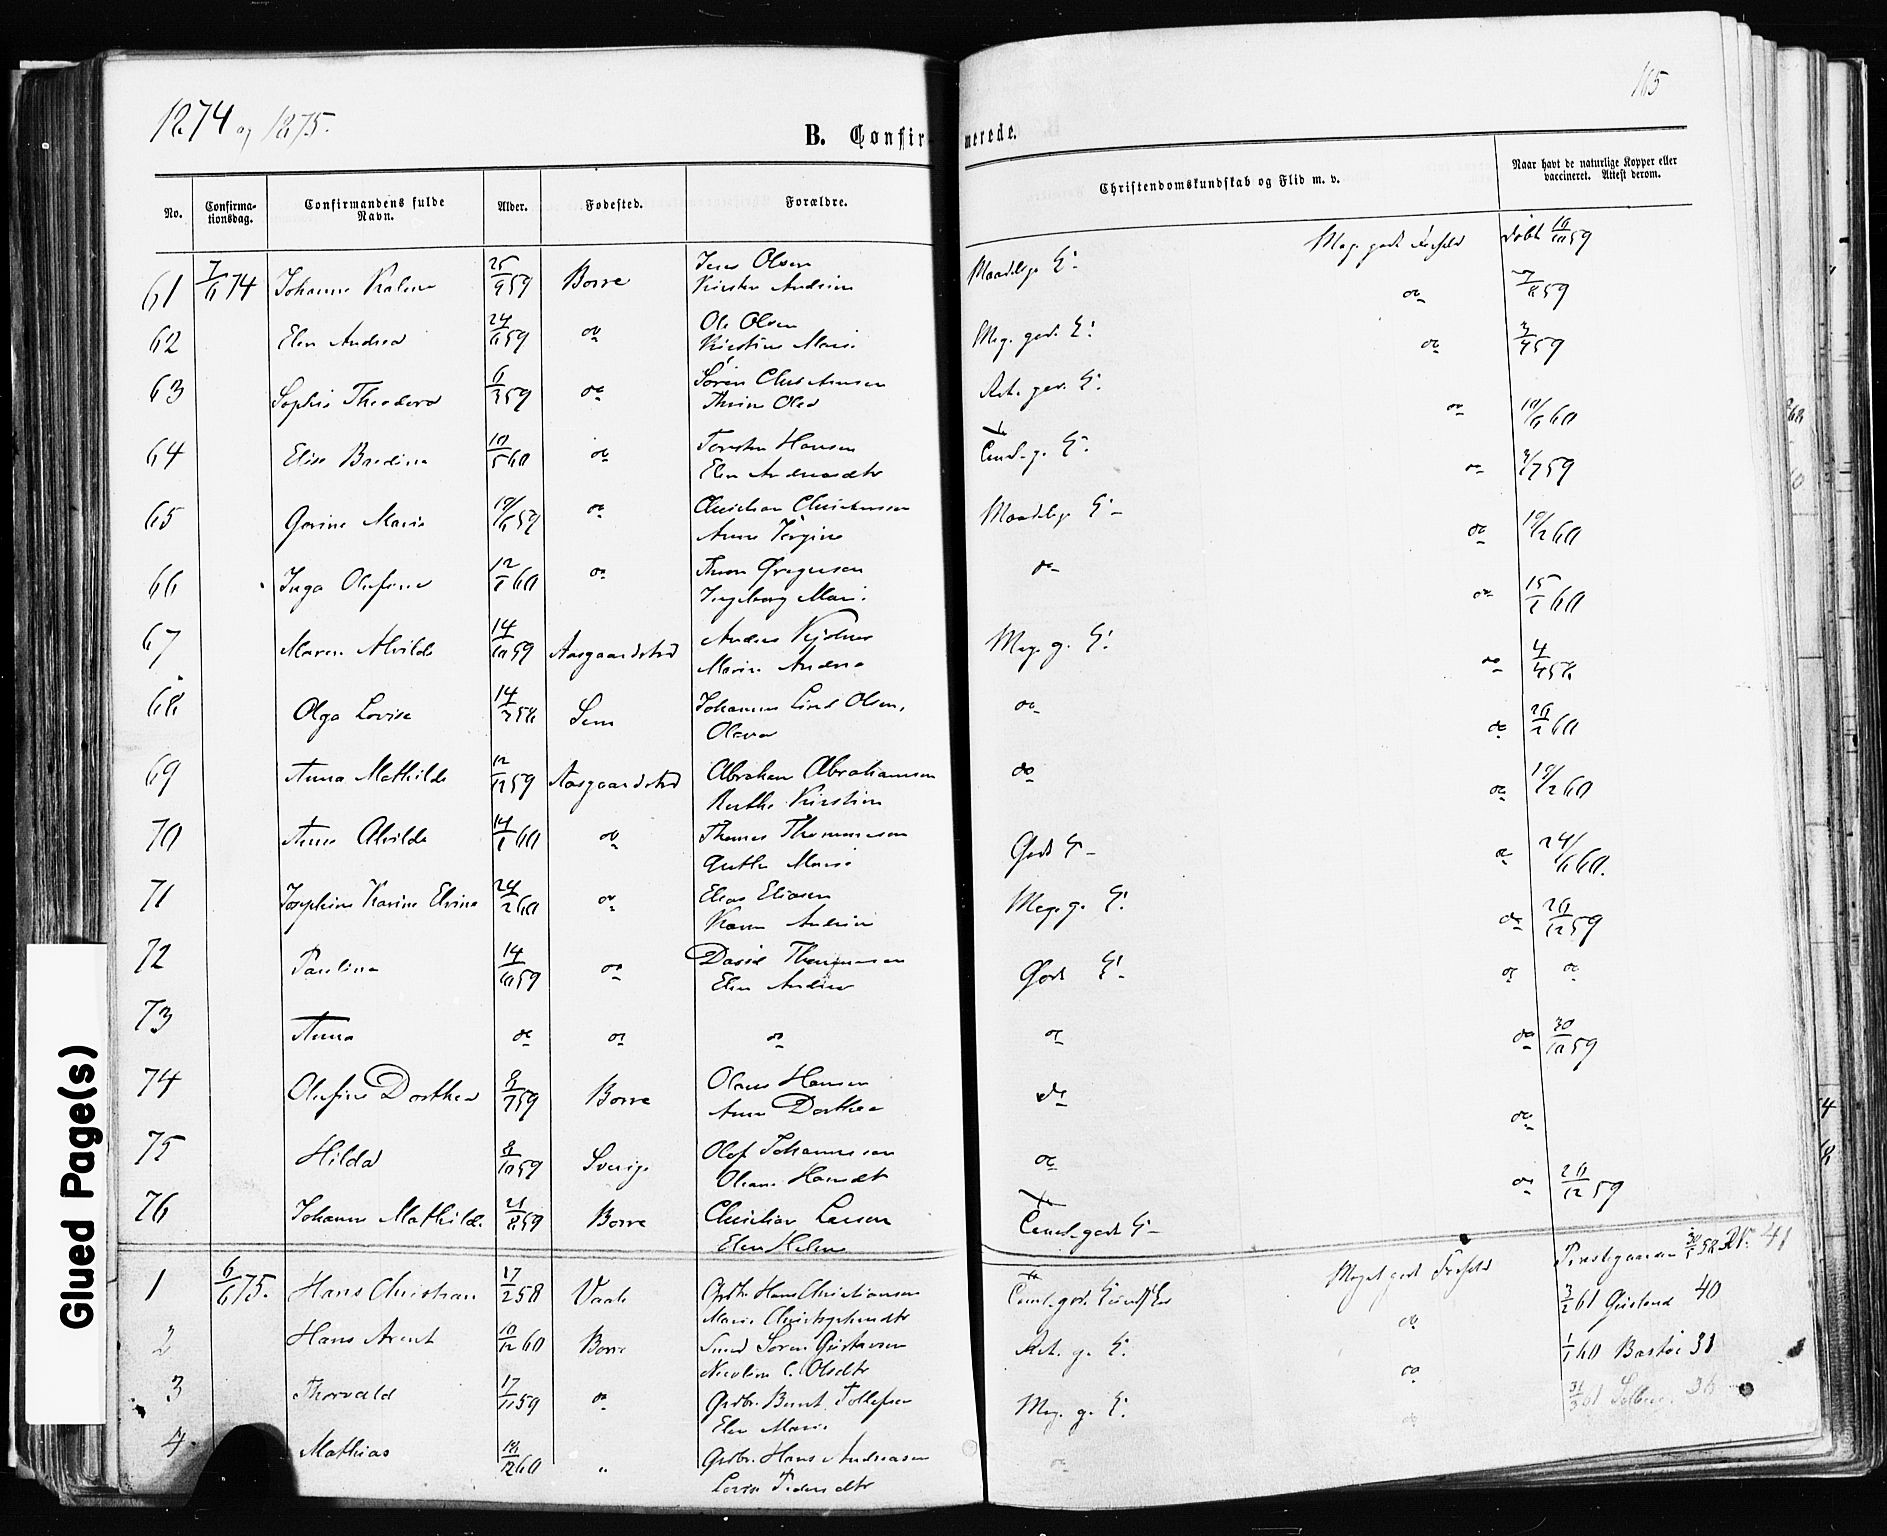 1874 og 1875.
165
B. Confirmerede.
No. Confirmationsdag. Confirmandens fulde Navn. Alder. Fødested. Forældre. Christendomskundskab og Flid m. v. Naar havt de naturlige Kopper eller vaccineret. Attest derom.
61 7/6 74 Johanne 25/9 59 Borre Jens Olsen Maadelig K: Meg. godt Forhold døbt
Andrine
62 Elen Andrea 24/6 59 do Ole Olsen Meg. god. K: do 7/8 59
Kirstine Marie
63 Sophie Theodora 6/3 59 do Søren Christensen K: do 3/4 59
Thrine Olea
64 Elise 10/5 60 do Torsten Hansen K: do 10/6 60
Elen Andreasdtr
65 Gorine Marie 19/6 59 do Christian Christensen Maadelig K: do 3/7 59
Anne Jørgine
66 Inga Olufine 12/1 60 do Gregersen do do 19/2 60
Ingeborg Marie
67 Maren Alvilde 14/10 59 Aasgaardstrd Anders Meg. g. K: do 15/1 60
Maren Andrea
68 Olga Lovise 14/3 58 Sem Johannes Lind Olsen, do do 4/4 58
Olava
69 Anna Mathilde 12/12 59 Aasgaardstrd Abraham Abrahamsen do do 26/2 60
Kirstine
70 Anne Alvilde 14/1 60 do Thomas Thomassen Godt K: do 19/2 60
Marie
71 Josephine Karine Elvine 24/2 60 do Elias Eliasen Meg. g. K: do 24/6 60.
Karen Andrine
72 Pauline 14/10 59 do David Godt K: do 26/12 59
Elen Andrea
73 Anna do do do do do do
74 Olufine Dorthea 8/7 59 Borre Olaus Hansen do do 30/10 59
Anne Dorthea
75 Hilda 8/10 59 Sverige Olof Johannessen do do
76 Johanne Mathilde 21/8 59 Borre Christian Larsen Temml. godt K: do 26/12 59
Elen Helene
1 6/6 75. Hans Christian 17/2 58 Vaale Grdbr. Hans Christiansen Meget godt Forhold Præstegaarden 41
Marie Christophersdtr
2 Hans Arent 10/12 60 Borre Smed Søren Gustavsen g. K: do 3/2 61 40
Nicoline C. Olsdtr
3 Thorvald 17/11 59 do Grdbr. Bernt Tollefsen Meg. g. K: do 1/1 60 Bastøe 38
Elen Marie
4. Mathias 18/12 60 " Grdbr. Hans Andreasen do do 31/3 61 36
Lovise
Glued Page(s)